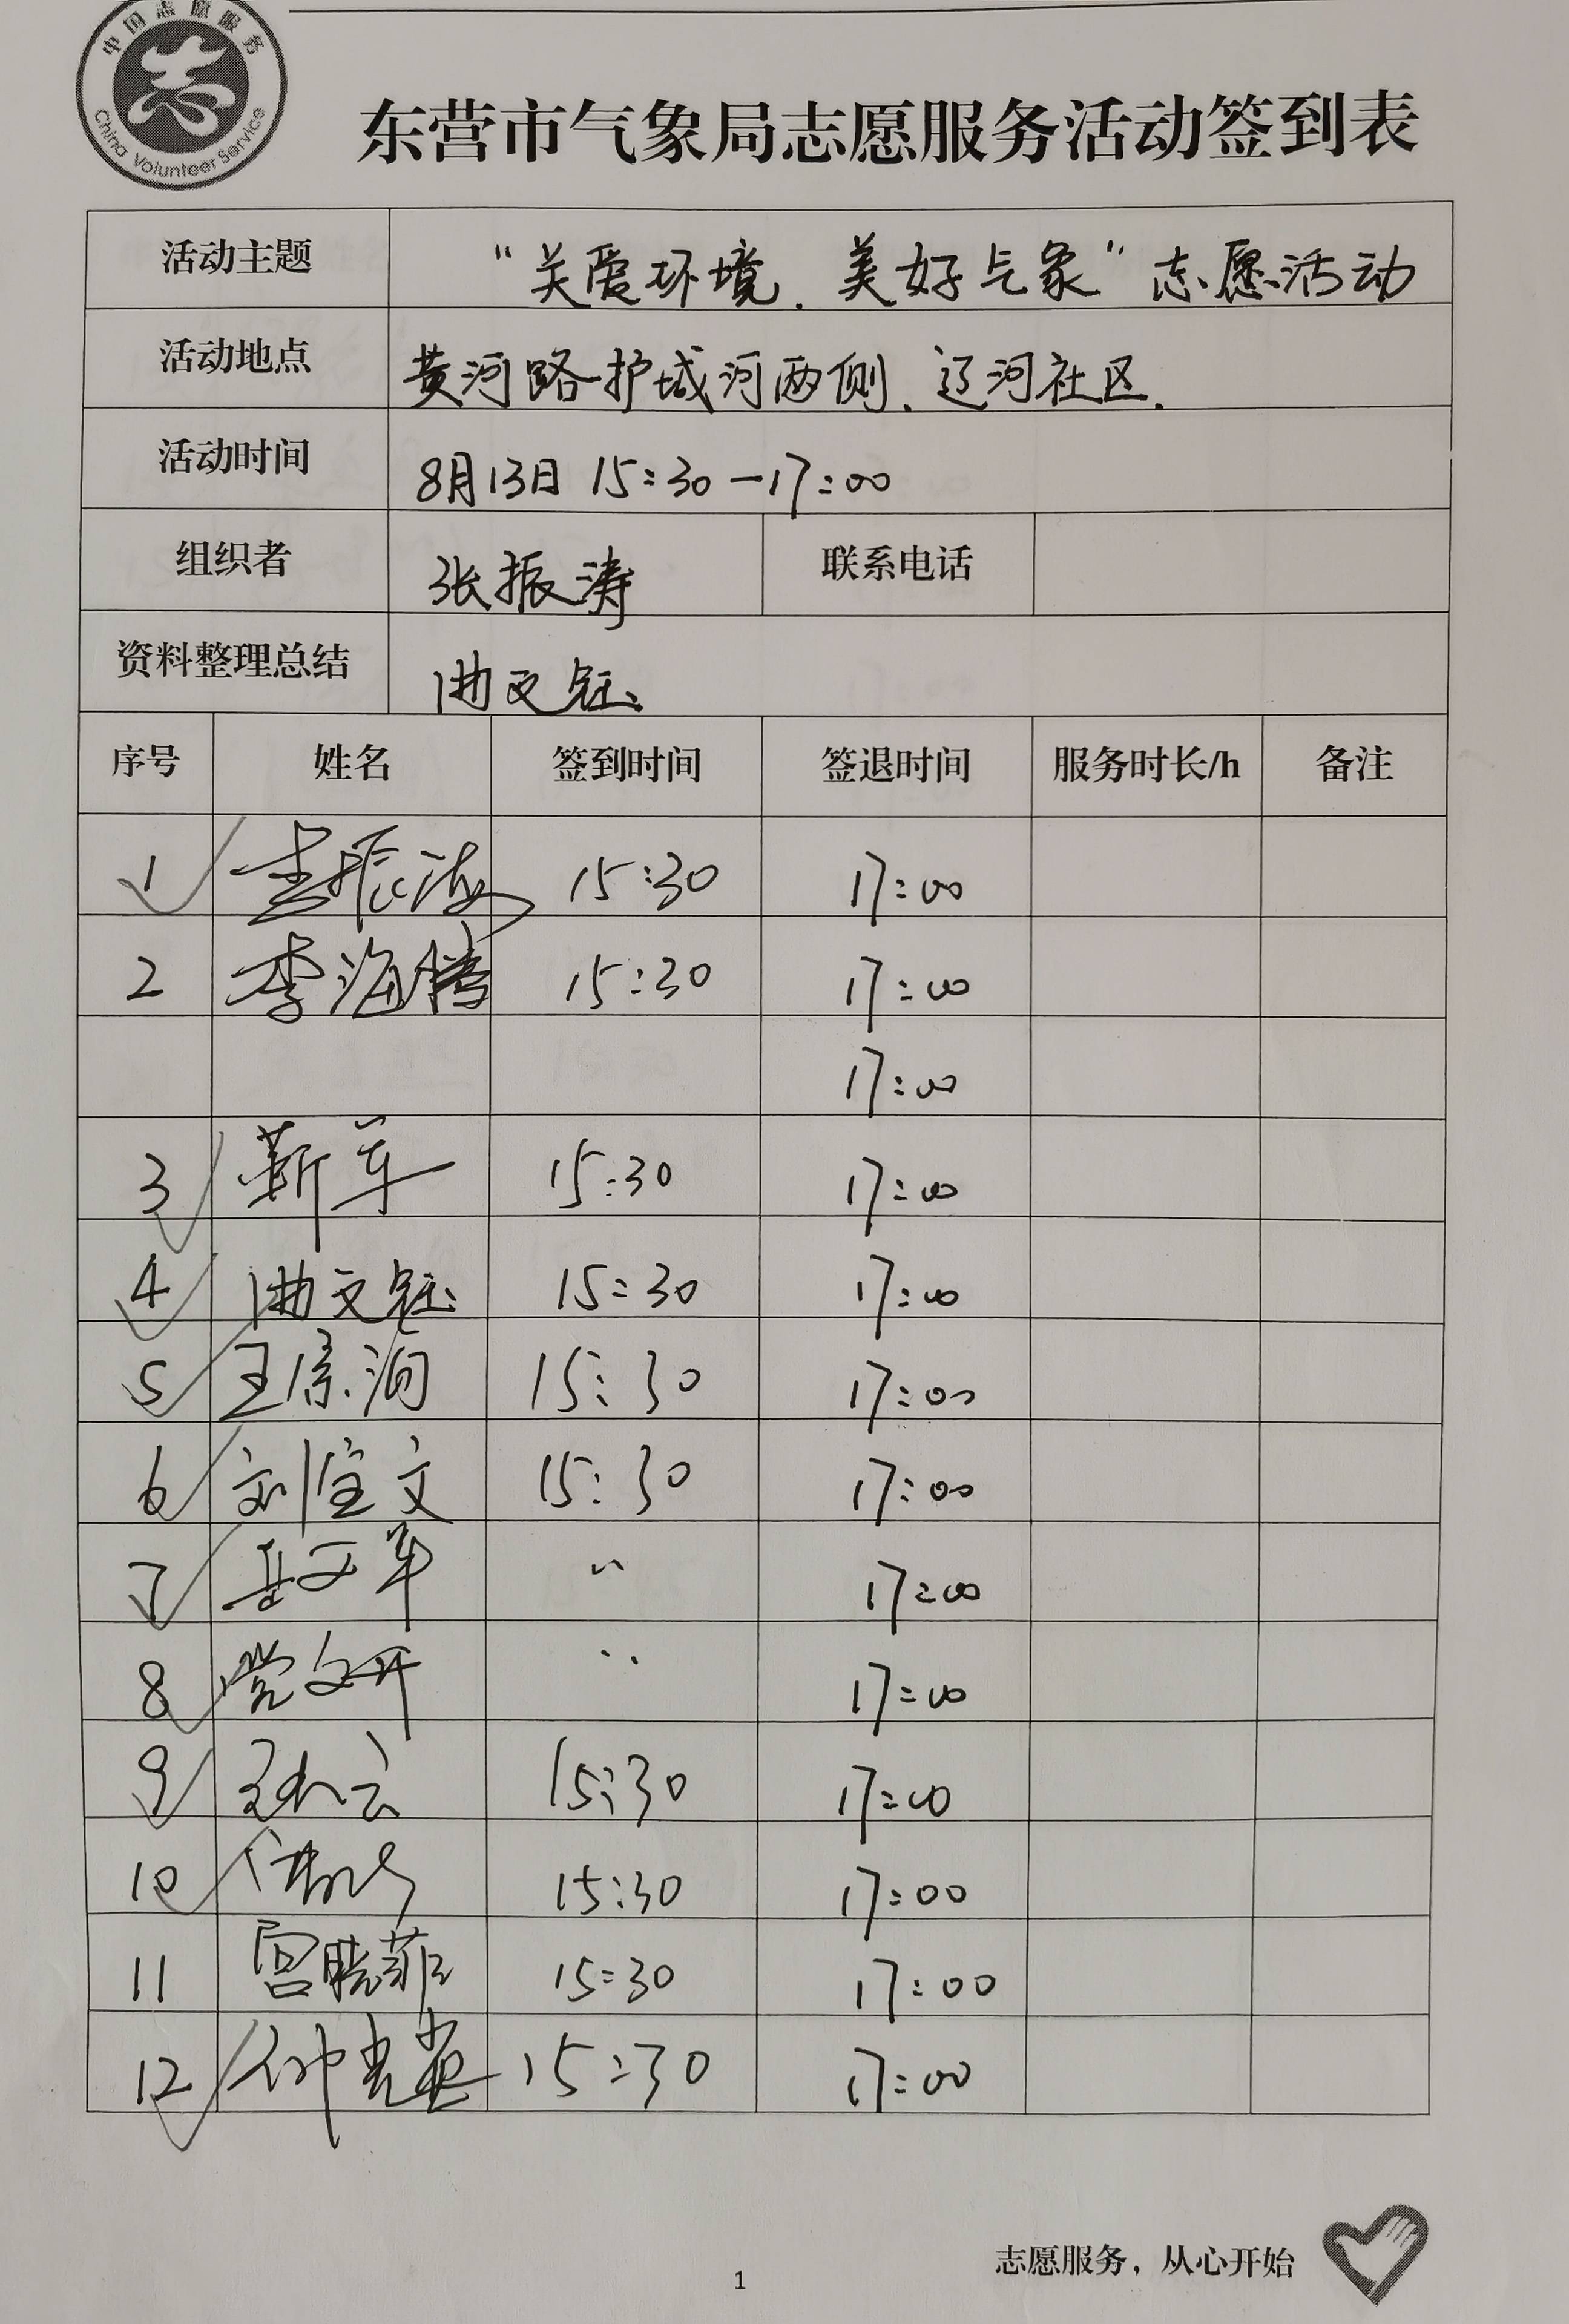 中国志愿服务
China Volunteer Service
东营市气象局志愿服务活动签到表
活动主题 “关爱环境、美好气象”志愿活动
活动地点 黄河路护城河两侧、辽河社区.
活动时间 8月13日 15:30-17:00
组织者 张振涛 联系电话
资料整理总结 曲文钰
序号 姓名 签到时间 签退时间 服务时长/h 备注
1 李振海 15:30 17:00
2 李海腾 15:30 17:00
17:00
3 靳军 15:30 17:00
4 曲文钰 15:30 17:00
5 王景润 15:30 17:00
6 刘宝文 15:30 17:00
7 岳文军 〃 17:00
8 党文开 〃 17:00
9 15:30 17:00
10 15:30 17:00
11 宫晓菲 15:30 17:00
12 钟光英 15:30 17:00
志愿服务，从心开始
1